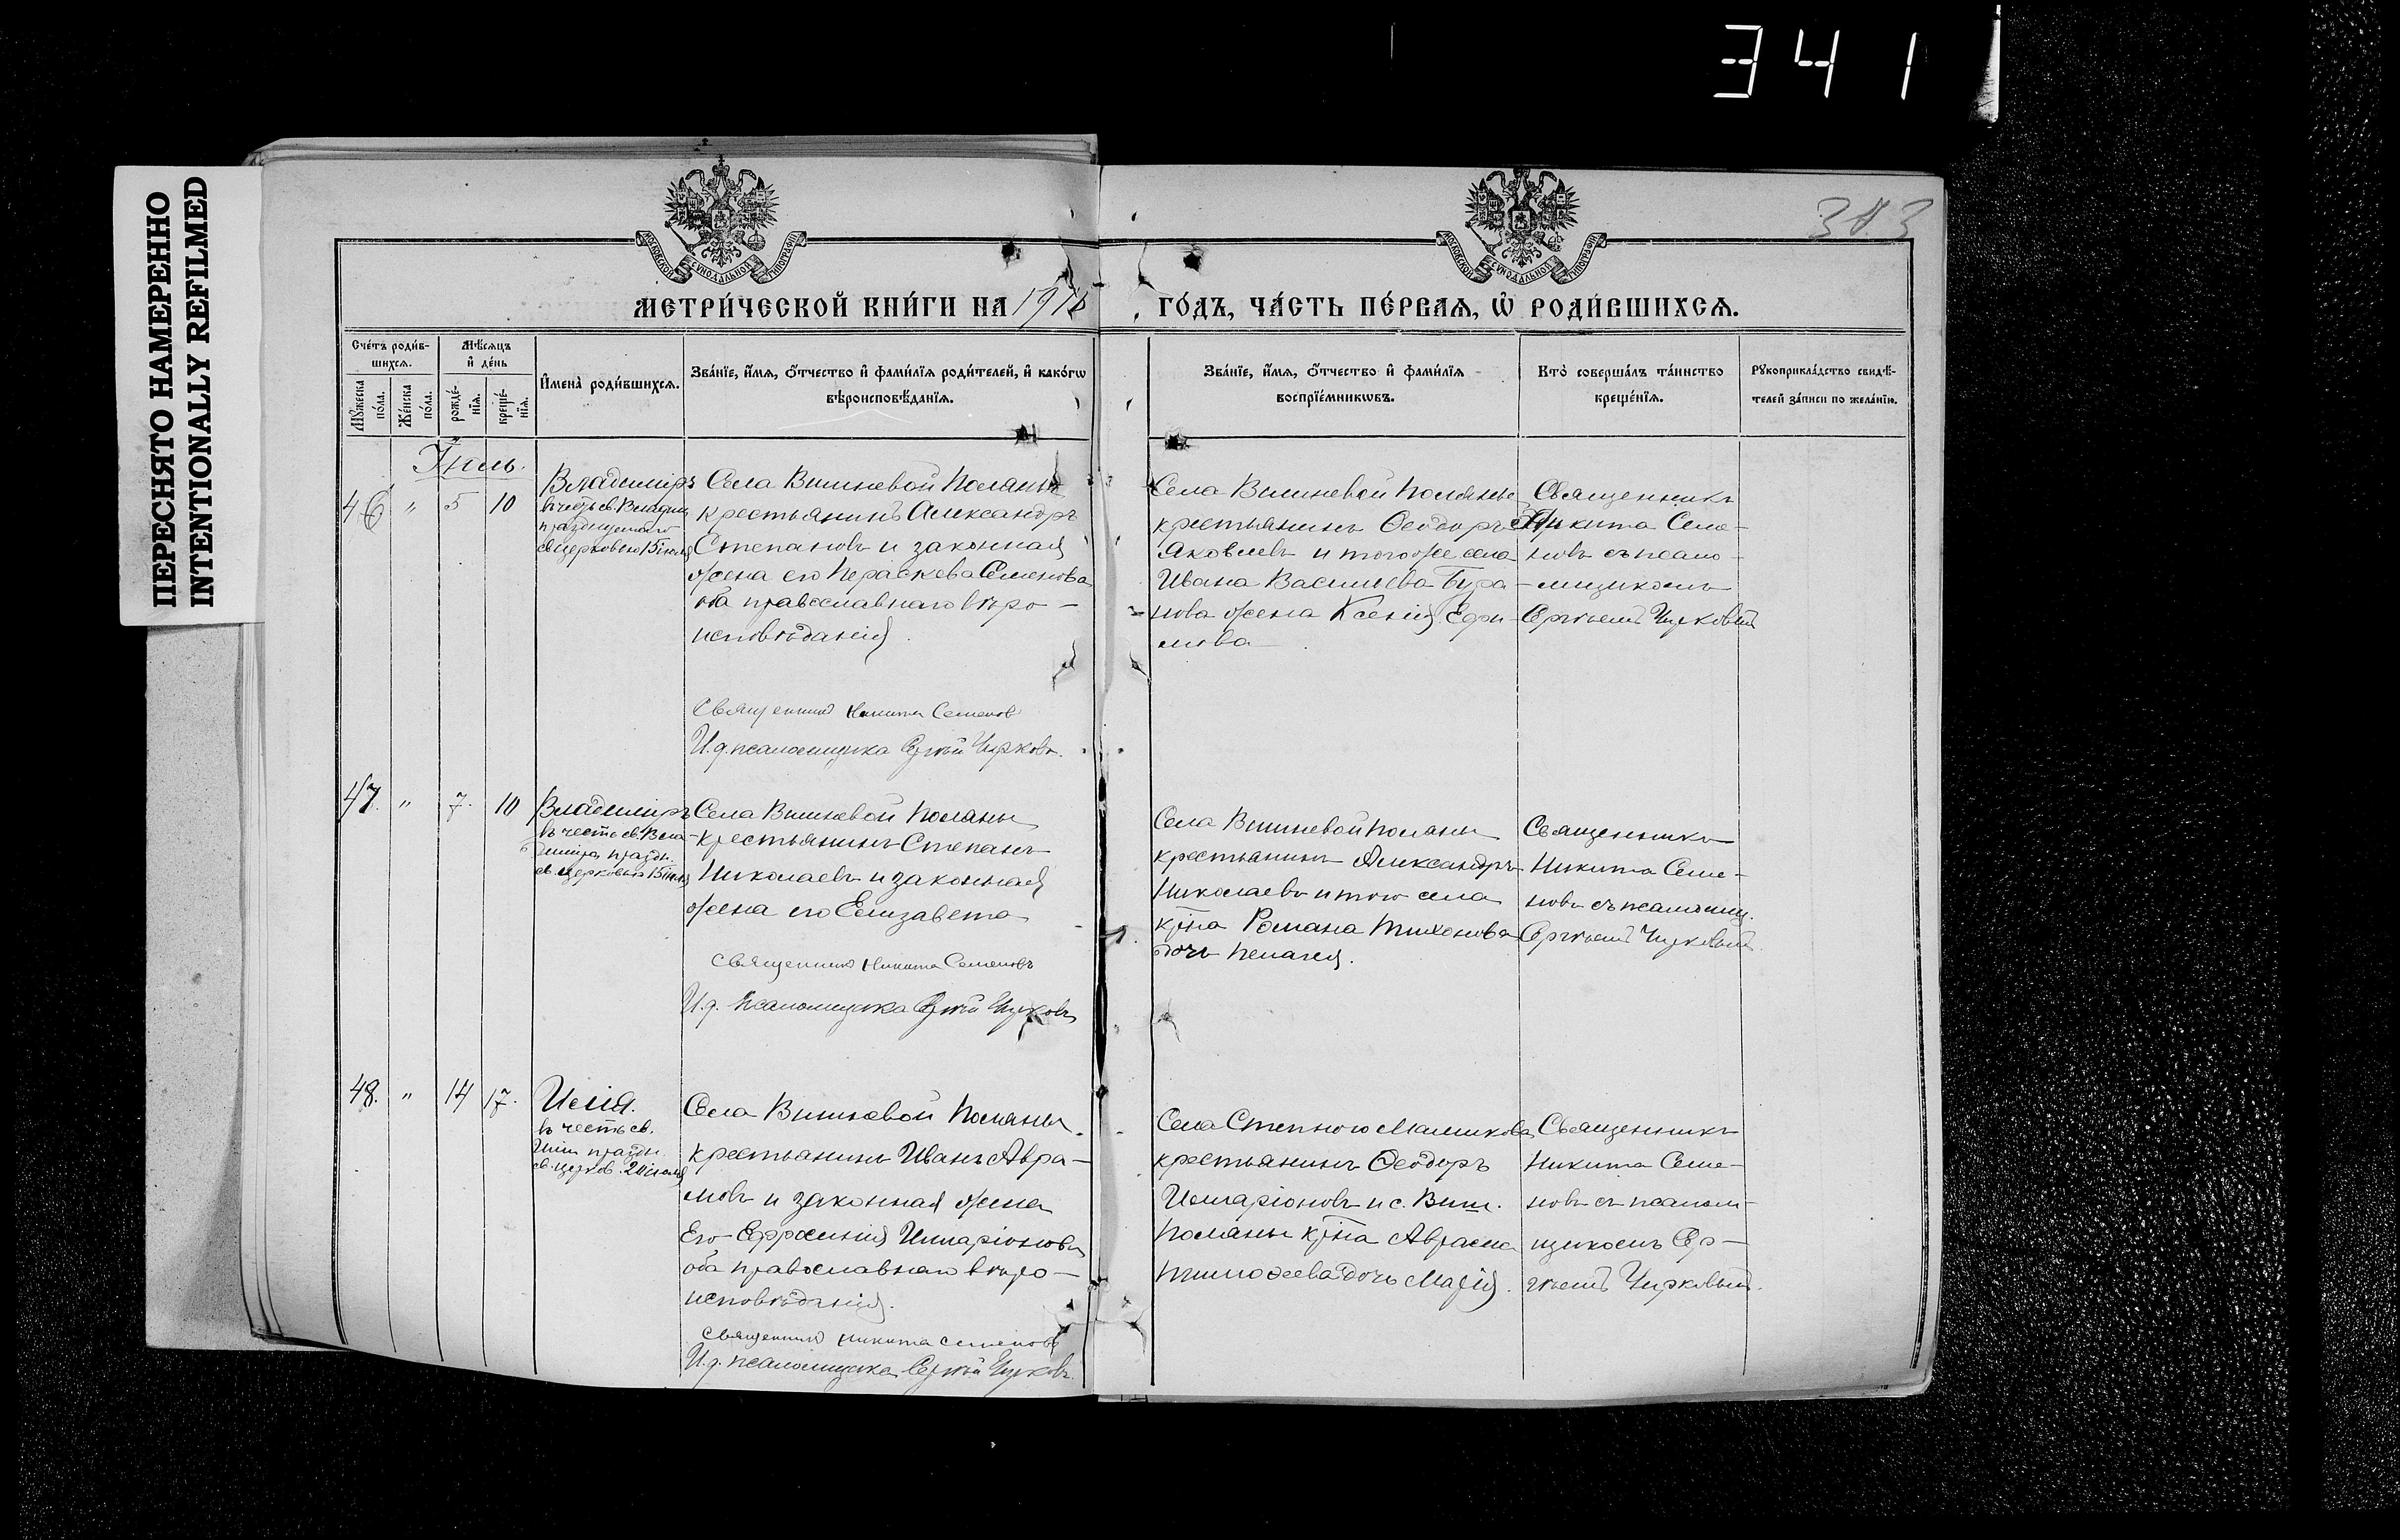 341
ПЕРЕСНЯТО НАМЕРЕННО
INTENTIONALLY REFILMED
383
МОСКОВСКОЙ СѴНОДАЛЬНОЙ ТИПОГРАФІИ
МОСКОВСКОЙ СѴНОДАЛЬНОЙ ТИПОГРАФІИ
МЕТРИ́ЧЕСКОЙ КНИ́ГИ НА 191 ГО́ДЪ, ЧА́СТЬ ПЕ́РВАѦ, Ѡ҆ РОДИ́ВШИХСѦ.
Сче́тъ роди́в-
шихсѧ.
Мꙋ́жеска по́ла.
Же́нска по́ла.
Мѣ́сѧцъ и҆ де́нь
рожде́-нїѧ.
креще́-нїѧ.
И҆мена̀ роди́вшихсѧ.
Зва́нїе, и҆́мѧ, ѻ҆́тчество и҆ фами́лїѧ роди́телей, и҆ како́гѡ
вѣроисповѣ́данїѧ.
Зва́нїе, и҆́мѧ, ѻ҆́тчество и҆ фами́лїѧ
воспрїе́мникѡвъ.
Кто̀ соверша́лъ та́инство
креще́нїѧ.
Рꙋкоприкла́дство свидѣ́-
телей за́писи по жела́нїю.
Іюль.
46 " 5 10
Владиміръ
въ честь св. Владим
празднуемаго
св. церковью 15 іюля
Села Вишневой Поляны
крестьянинъ Александръ
Степановъ и законная
жена его Параскева Семенова
оба православнаго вѣро-
исповѣданія.
Священникъ Никита Семенов
И.д. псаломщика Сергѣй Чирковъ.
Села Вишневой Поляны
крестьянинъ Ѳеодоръ
Яковлевъ и тогоже села
Ивана Васильева Бура-
нова жена Ксенія Ефи-
мова
Священникъ
Никита Семе-
новъ съ псало-
мщикомъ
Сергѣемъ Чирковым
47. " 7. 10
Владиміръ
въ честь св. Вла-
диміра праздн.
св. церковью 15 іюля
Села Вишневой Поляны
крестьянинъ Степанъ
Николаевъ и законная
жена его Елизавета
Священникъ Никита Семеновъ
И.д. псаломщика Сергѣй Чирковъ
Села Вишневой Поляны
крестьянинъ Александръ
Николаевъ и того села
кр-на Романа Тихонова
дочь Пелагея.
Священникъ
Никита Семе-
новъ съ псаломщ.
Сергѣемъ Чирковым
48. " 14 17.
Илія.
въ честь св.
Иліи праздн.
св. церков. 20 іюля
Села Вишневой Поляны
крестьянинъ Иванъ Авра-
мовъ и законная жена
Его Ефросинія Илларіонова
оба православнаго вѣро-
исповѣданія.
Священникъ Никита Семеновъ
И.д. псаломщика Сергѣй Чирковъ.
Села Степного Маликова
крестьянинъ Ѳеодоръ
Илларіоновъ и с. Виш.
Поляны кр-на Аврама
Тимоѳеева дочь Марія.
Священникъ
Никита Семе-
новъ съ псалом-
щикомъ Сер-
гѣемъ Чирковым.